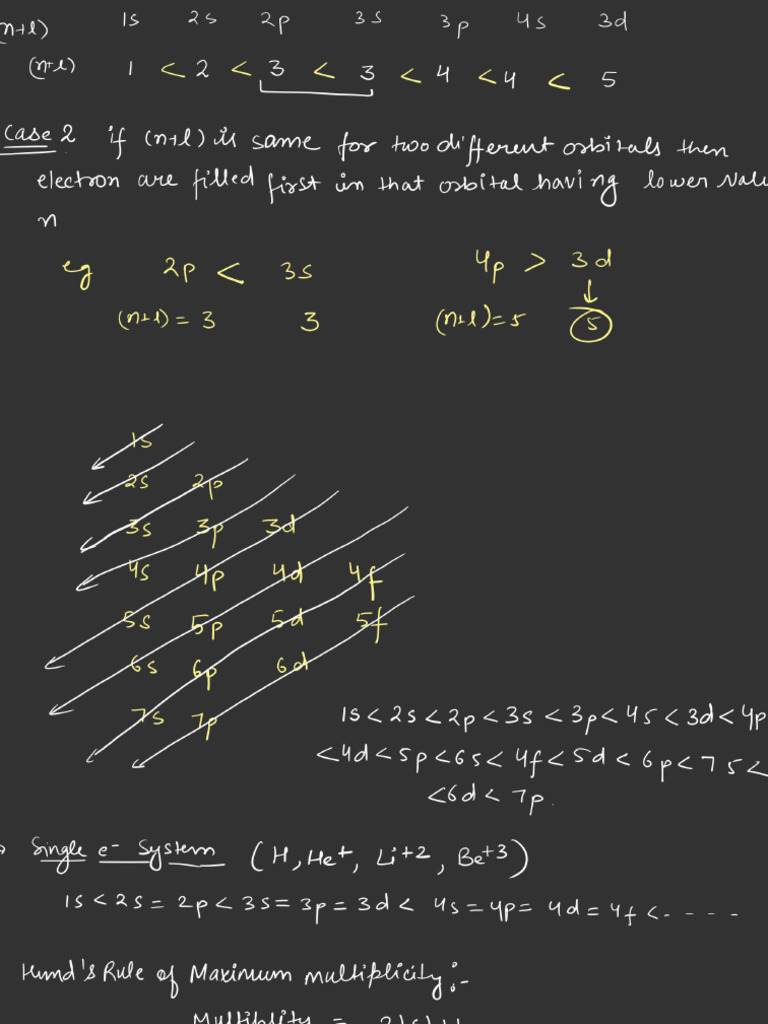 (n+l) 1s 2s 2p 3s 3p 4s 3d
(n+l) 1 < 2 < 3 < 3 < 4 < 4 < 5
Case 2 if (n+l) is same for two different orbitals then
electron are filled first in that orbital having lower
n
eg 2p < 3s 4p > 3d
(n+l) = 3 3 (n+l) = 5 5
1s
2s 2p
3s 3p 3d
4s 4p 4d 4f
5s 5p 5d 5f
6s 6p 6d
7s 7p
1s < 2s < 2p < 3s < 3p < 4s < 3d < 4p
< 4d < 5p < 6s < 4f < 5d < 6p < 7s <
< 6d < 7p.
Single e- System (H, He+, Li+2, Be+3)
1s < 2s = 2p < 3s = 3p = 3d < 4s = 4p = 4d = 4f < - - - - -
Hund's Rule of Maximum multiplicity :-